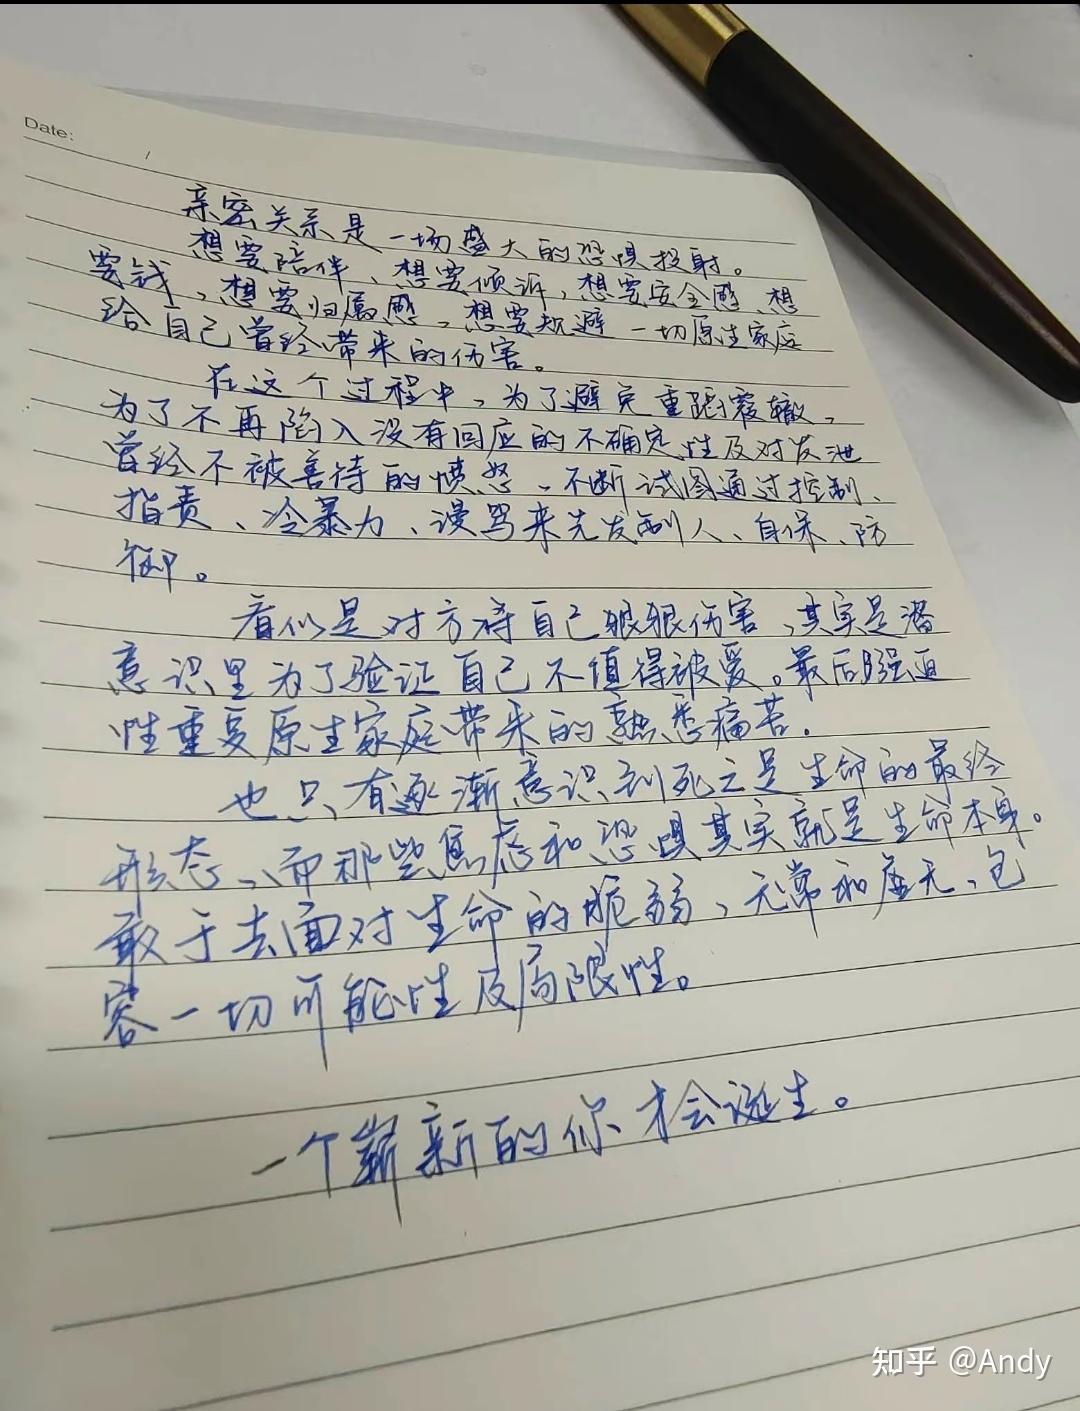 Date:
亲密关系是一场盛大的恐惧投射。
想要陪伴、想要倾诉,想要安全感、想
要钱,想要归属感,想要规避一切原生家庭
给自己曾经带来的伤害。
在这个过程中,为了避免重蹈覆辙,
为了不再陷入没有回应的不确定性及对发泄
曾经不被善待的愤怒,不断试图通过控制、
指责、冷暴力、谩骂来先发制人、自保、防
御。
看似是对方将自己狠狠伤害,其实是潜
意识里为了验证自己不值得被爱。最后强迫
性重复原生家庭带来的熟悉痛苦.
也只有逐渐意识到死亡是生命的最终
形态,而那些焦虑和恐惧其实就是生命本身。
敢于去面对生命的脆弱、无常和虚无、包
容一切可能性及局限性。
一个崭新的你才会诞生。
知乎 @Andy